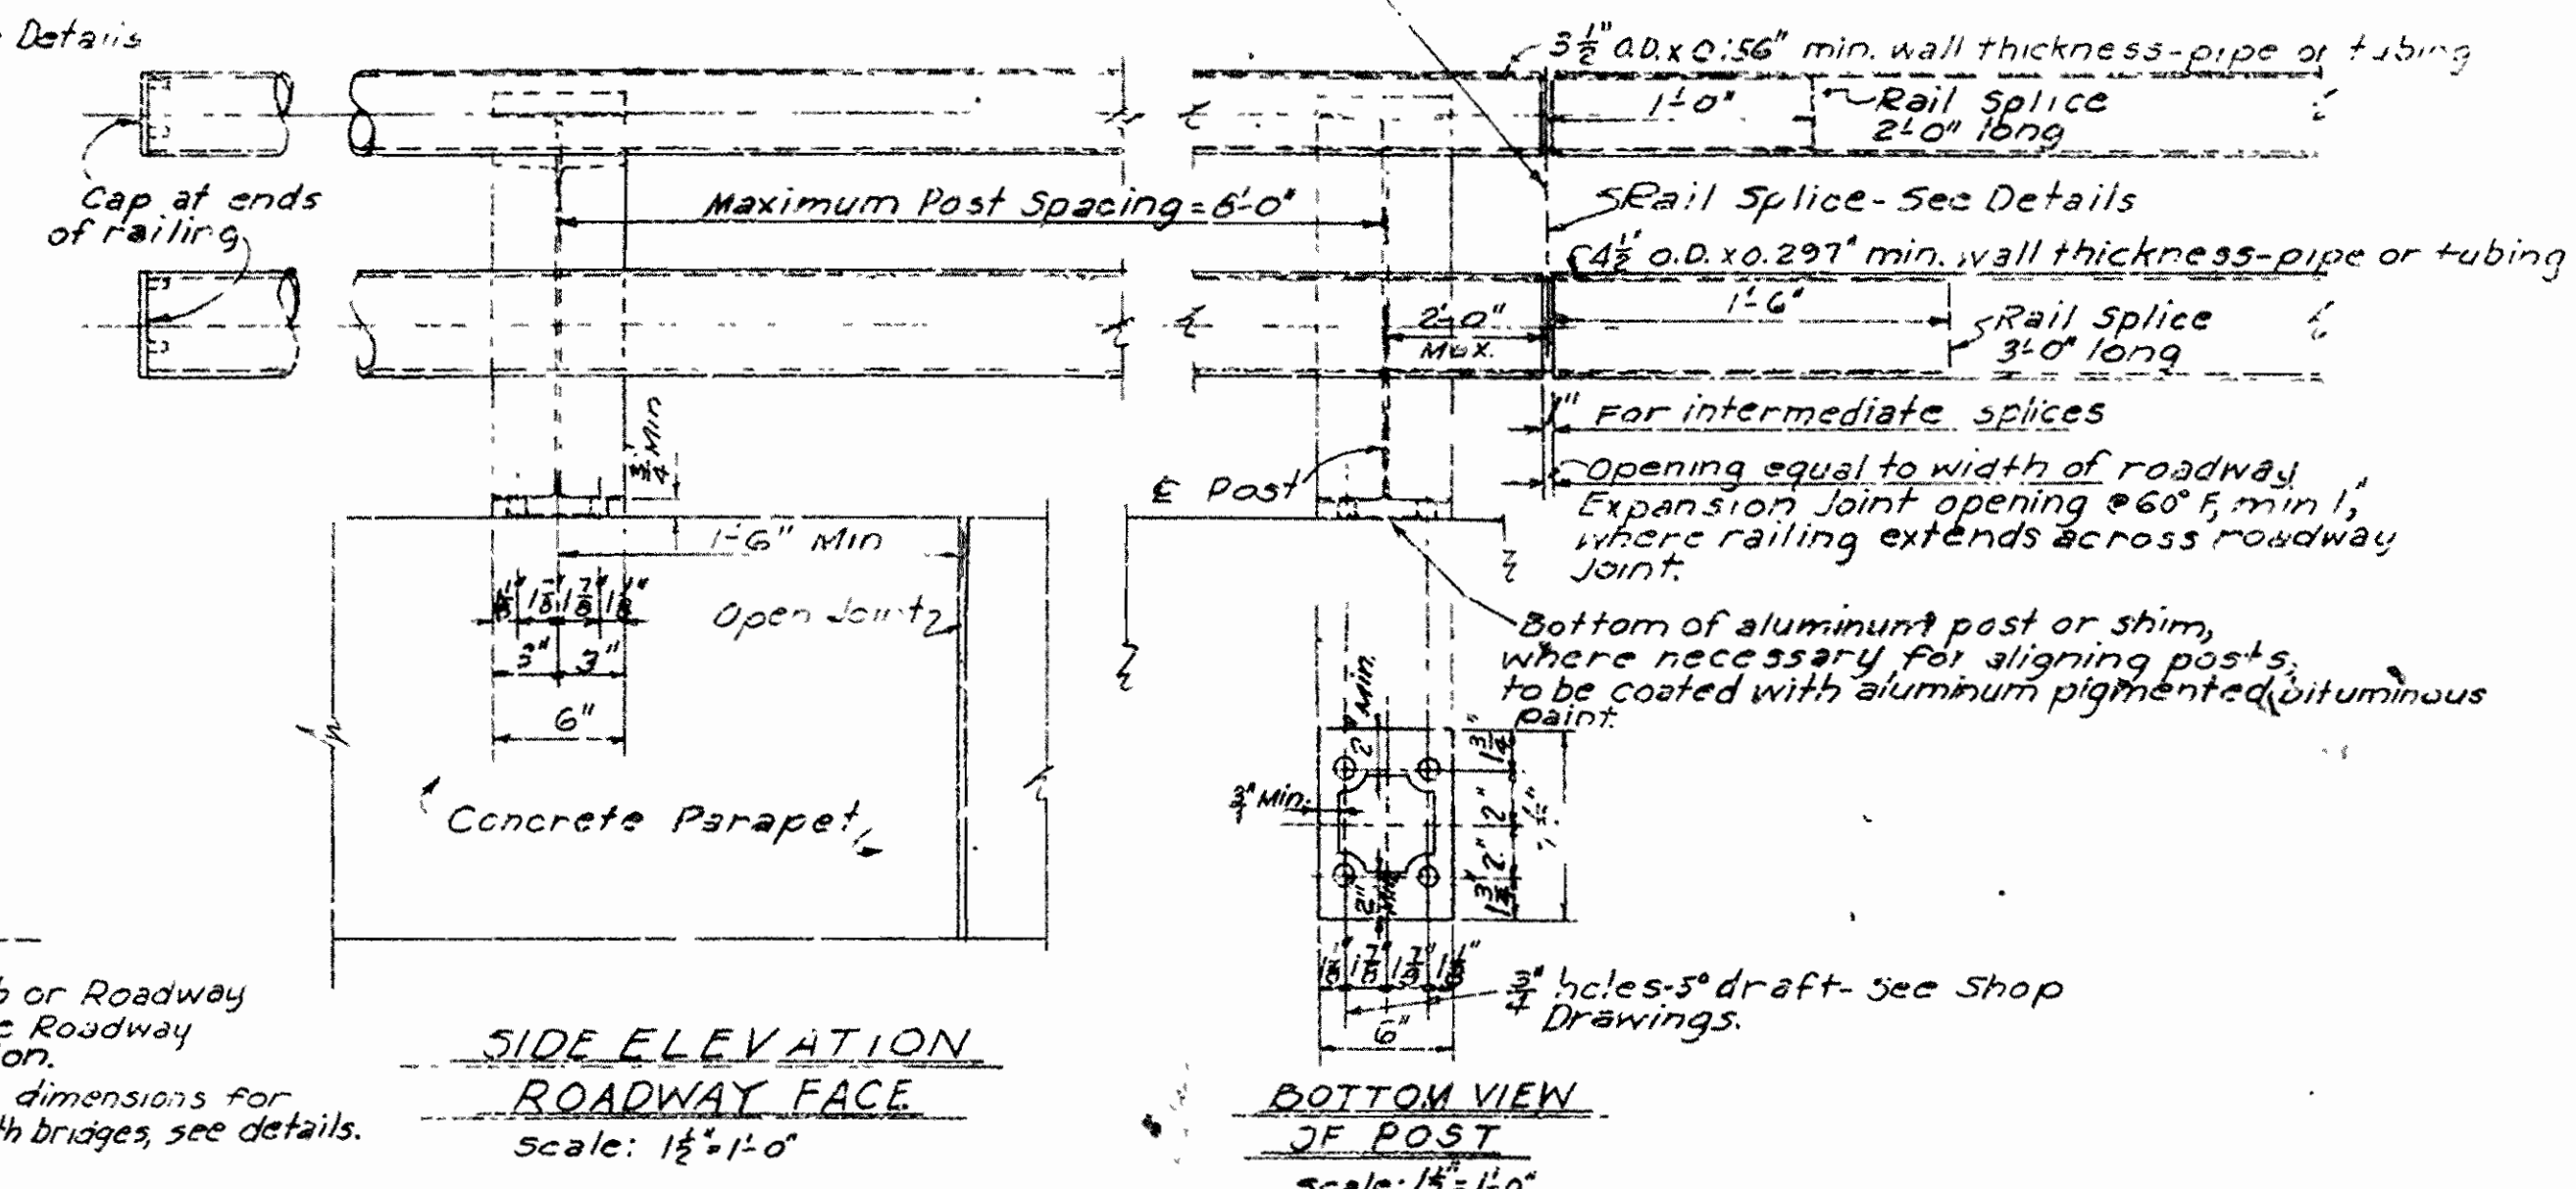 Details
3 1/2" O.D. x 0.156" min. wall thickness-pipe or tubing
1'-0"
Rail Splice
2'-0" long
Cap at ends
of railing
Maximum Post Spacing = 6'-0"
Rail Splice - See Details
4 1/2" O.D. x 0.297" min. wall thickness-pipe or tubing
2'-0"
Max.
1'-6"
Rail Splice
3'-0" long
1" For intermediate splices
3/4" Min
℄ Post
Opening equal to width of roadway
Expansion Joint opening @ 60° F, min 1",
where railing extends across roadway
Joint.
1'-6" Min
1 1/8" 1 7/8" 1 7/8" 1 1/8"
Open Joint
3" 3"
6"
Bottom of aluminum post or shim,
where necessary for aligning posts,
to be coated with aluminum pigmented bituminous
paint.
2" Min.
1 3/4"
3/4" Min.
2"
Concrete Parapet
2"
1 3/4"
7 1/2"
2" Min
1 1/8" 1 7/8" 1 7/8" 1 1/8"
3/4" holes-5° draft - See Shop
Drawings.
6"
or Roadway
Roadway
dimensions for
bridges, see details.
SIDE ELEVATION
ROADWAY FACE
Scale: 1 1/2" = 1'-0"
BOTTOM VIEW
OF POST
Scale: 1 1/2" = 1'-0"